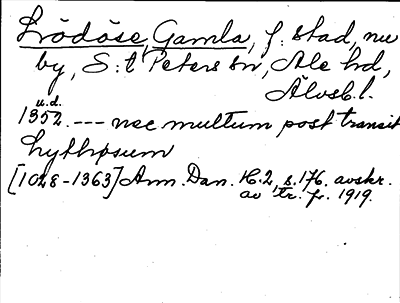 Lödöse, Gamla, f. stad, nu
by, S:t Peters sn, Ale hd,
Älvsb.l.
u.d.
1352. --- nec multum post transit
lythosum
[1028-1363] Ann. Dan. H.2, s.176. avskr.
av tr. fr. 1919.